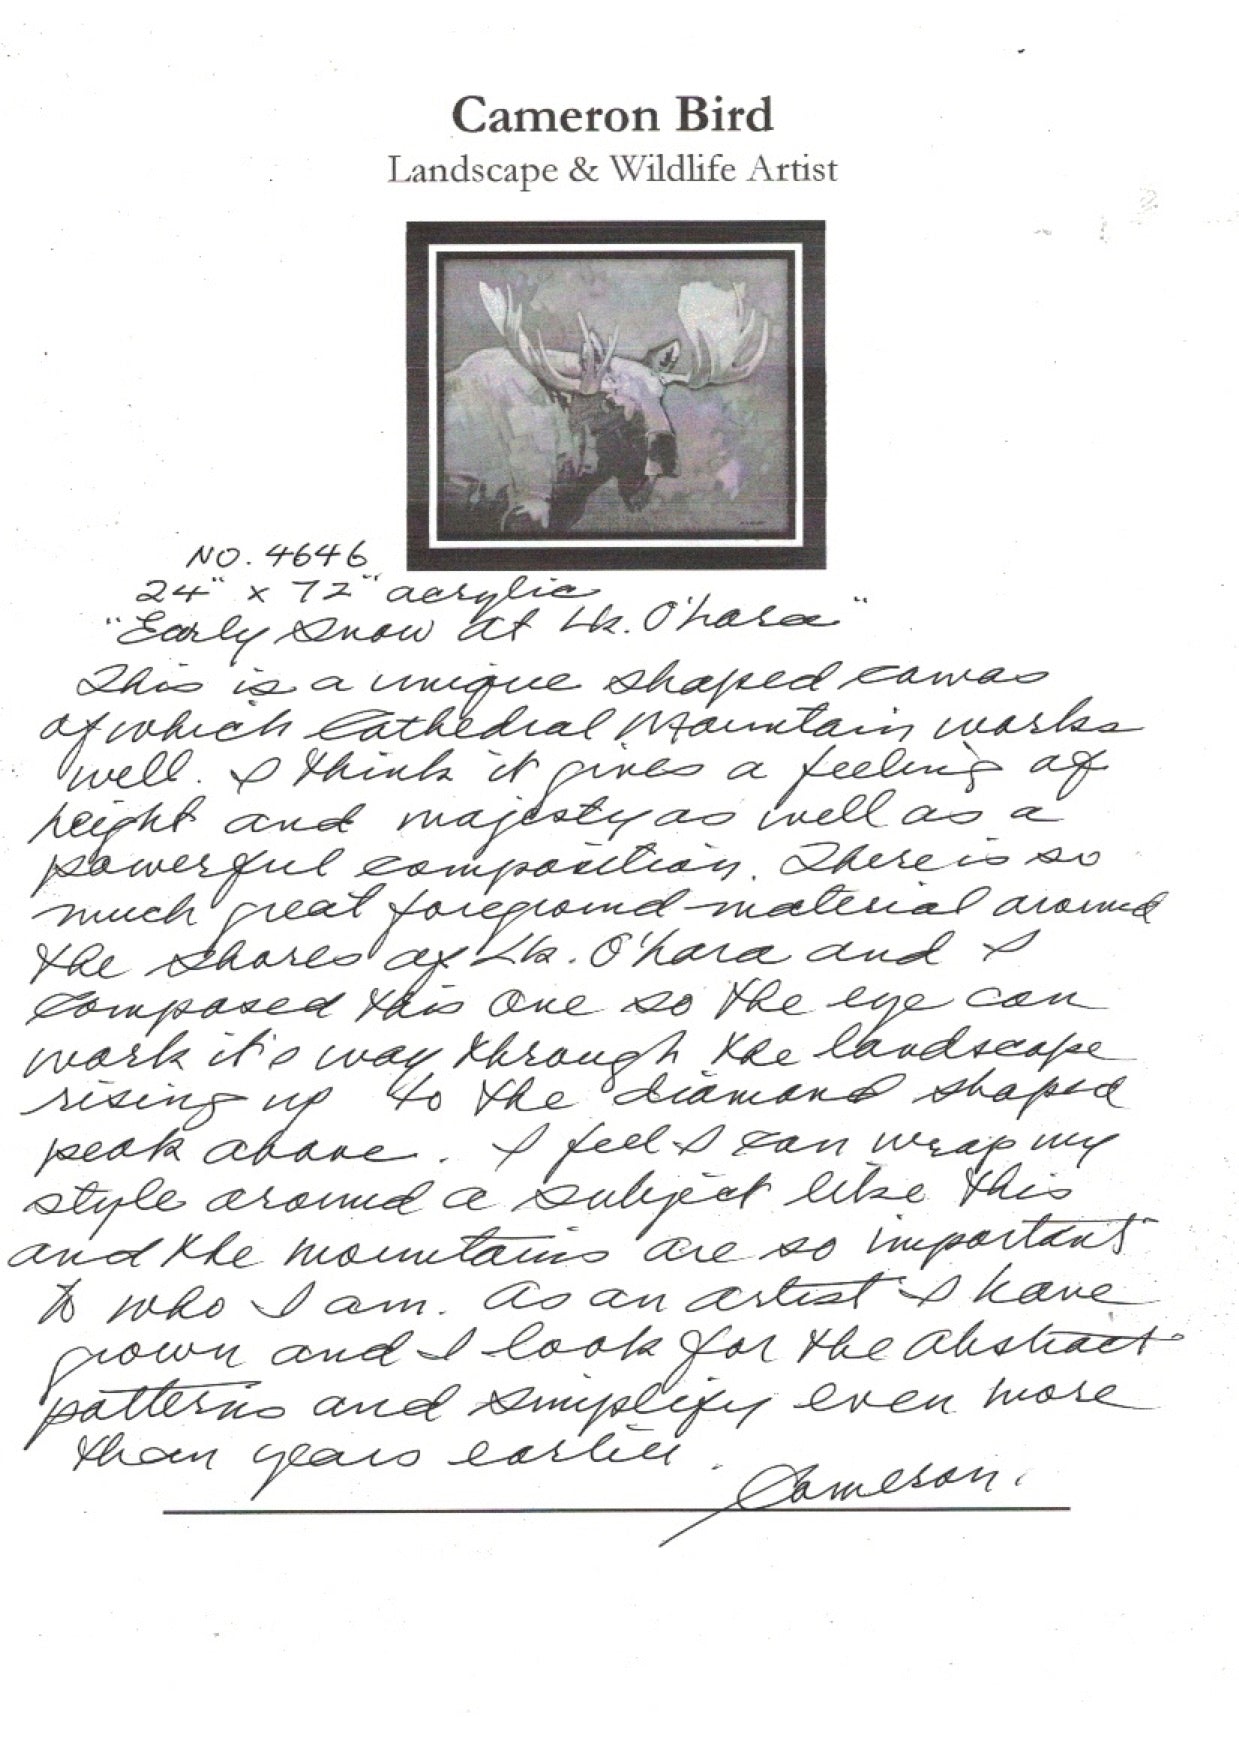 Cameron Bird
Landscape & Wildlife Artist
NO. 4646
24" x 72" acrylic
"Early Snow at Lk. O'hara"
This is a unique shaped canvas
of which Cathedral Mountain works
well. I think it gives a feeling of
height and majesty as well as a
powerful composition. There is so
much great foreground material around
the shores of Lk. O'hara and I
composed this one so the eye can
work it's way through the landscape
rising up to the diamond shaped
peak above. I feel I can wrap my
style around a subject like this
and the mountains are so important
to who I am. As an artist I have
grown and I look for the abstract
patterns and simplify even more
than years earlier.
Cameron.